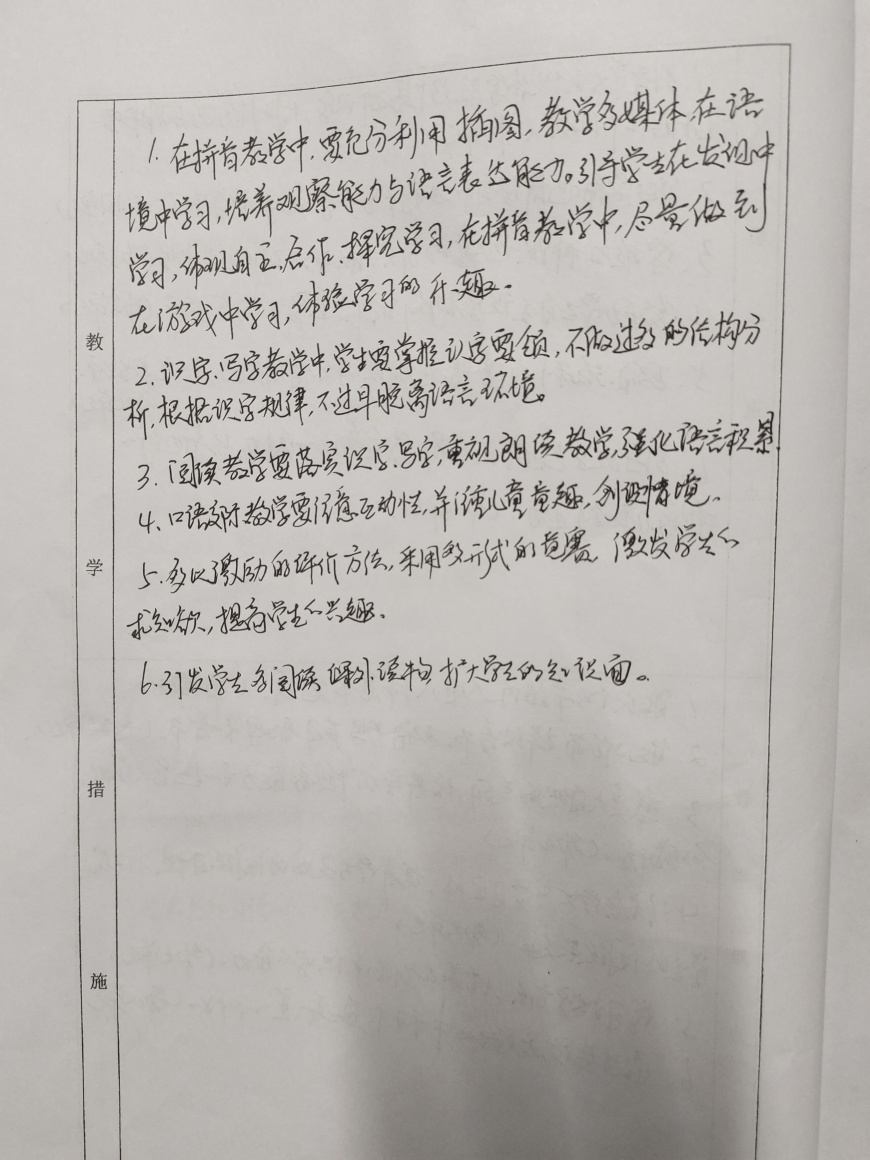 教学措施
1. 在拼音教学中,要充分利用插图,教学多媒体,在语
境中学习,培养观察能力与语言表达能力。引导学生在发现中
学习,体现自主、合作、探究学习,在拼音教学中,尽量做到
在游戏中学习,体验学习的乐趣。
2. 识字、写字教学中,学生要掌握认字要领,不做过多的结构分
析,根据识字规律,不过早脱离语言环境。
3. 阅读教学要落实识字、写字,重视朗读教学,强化语言积累.
4、口语交际教学要注意互动性,并注重儿童童趣,创设情境。
5. 多以激励的评价方法,采用多形式的竞赛,激发学生的
求知欲,提高学生的兴趣。
6. 引发学生多阅读课外读物 扩大学生的知识面。